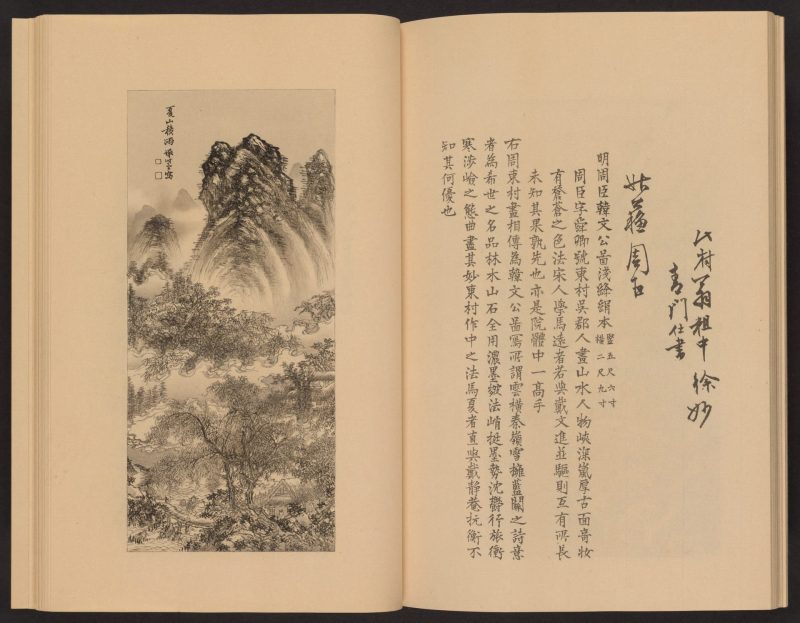 姑蘇周臣
明周臣韓文公啚淺絳絹本 竪五尺六寸 橫二尺九寸
周臣字舜卿號東村吳郡人畫山水人物峽深嵐厚古面奇妝
有蒼蒼之色法宋人學馬遠者若與戴文進並驅則互有所長
未知其果孰先也亦是院體中一高手
右周東村畫相傳為韓文公啚寫所謂雲橫秦嶺雪擁藍關之詩意
者為希世之名品林木山石全用濃墨皴法峭挺墨勢沈鬱行旅衝
寒涉嶮之態曲盡其妙東村作中之法馬夏者直與戴靜菴抗衡不
知其何優也
夏山積雨